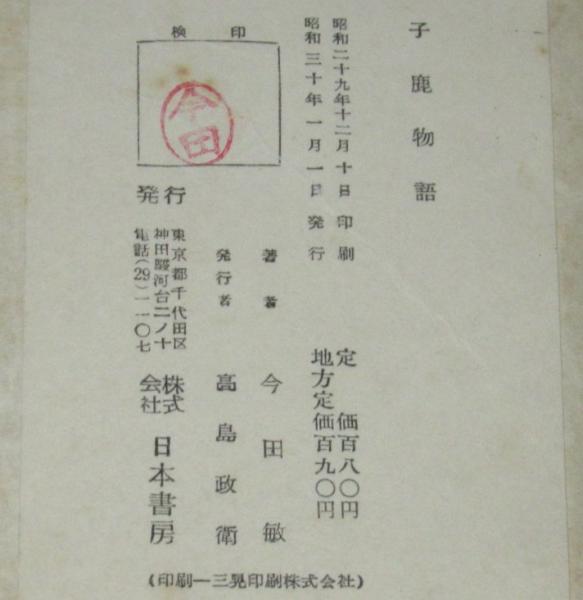 子鹿物語
昭和二十九年十二月十日 印刷
昭和三十年一月一日 発行
定価百八〇円
地方定価百九〇円
著者 今田敏
発行者 高島政衛
検印
今田
発行
東京都千代田区
神田駿河台二ノ十
電話(29)一一〇七
株式会社 日本書房
(印刷―三晃印刷株式会社)